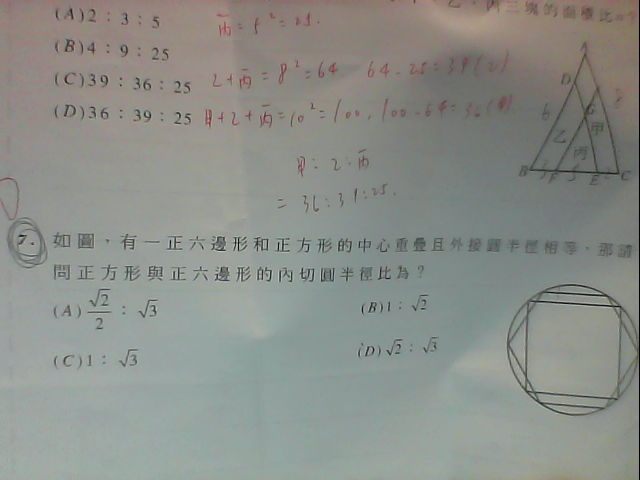 乙、丙三塊的面積比=?
(A) 2：3：5
丙=5²=25.
(B) 4：9：25
(C) 39：36：25
乙+丙=8²=64 64-25=39(乙)
(D) 36：39：25
甲+乙+丙=10²=100, 100-64=36(甲)
甲:乙:丙
=36:39:25.
A
D
8
6
G
甲
乙
丙
B F E C
7. 如圖，有一正六邊形和正方形的中心重疊且外接圓半徑相等，那請
問正方形與正六邊形的內切圓半徑比為？
(A) √2/2：√3
(B) 1：√2
(C) 1：√3
(D) √2：√3